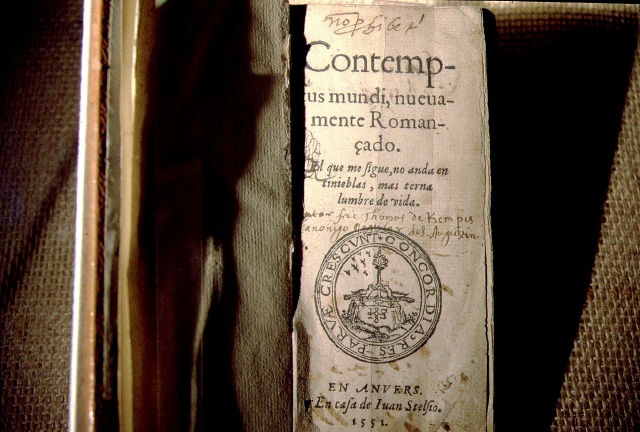 no phibet
Contemp-
tus mundi, nueua-
mente Roman-
çado.
El que me sigue, no anda en
tinieblas, mas terna
lumbre de vida.
autor frai Thomas de Kempis
canonigo Reglar de S. Augustin
CONCORDIA RES PARVÆ CRESCVNT
EN ANVERS.
En casa de Iuan Stelsio.
1551.